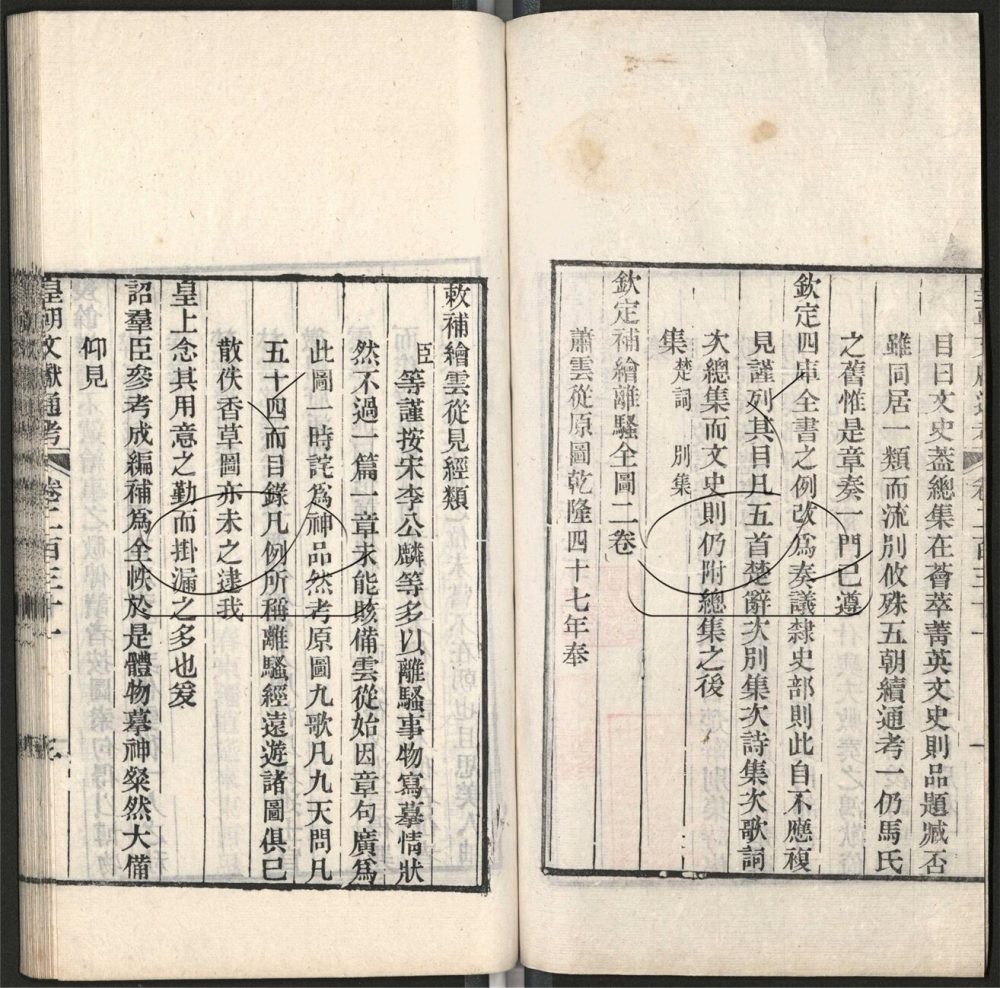 目曰文史蓋總集在薈萃菁英文史則品題臧否
雖同居一類而流別攸殊五朝續通考一仍馬氏
之舊惟是章奏一門已遵
欽定四庫全書之例改爲奏議隸史部則此自不應複
見謹列其目凡五首楚辭次別集次詩集次歌詞
次總集而文史則仍附總集之後
集楚詞 別集
欽定補繪離騷全圖二卷
蕭雲從原圖乾隆四十七年奉
敕補繪雲從見經類
臣等謹按宋李公麟等多以離騷事物寫摹情狀
然不過一篇一章未能賅備雲從始因章句廣爲
此圖一時詫爲神品然考原圖九歌凡九天問凡
五十四而目錄凡例所稱離騷經遠遊諸圖俱已
散佚香草圖亦未之逮我
皇上念其用意之勤而掛漏之多也爰
詔羣臣參考成編補爲全帙於是體物摹神粲然大備
仰見
皇朝文獻通考 卷二百三十一 三